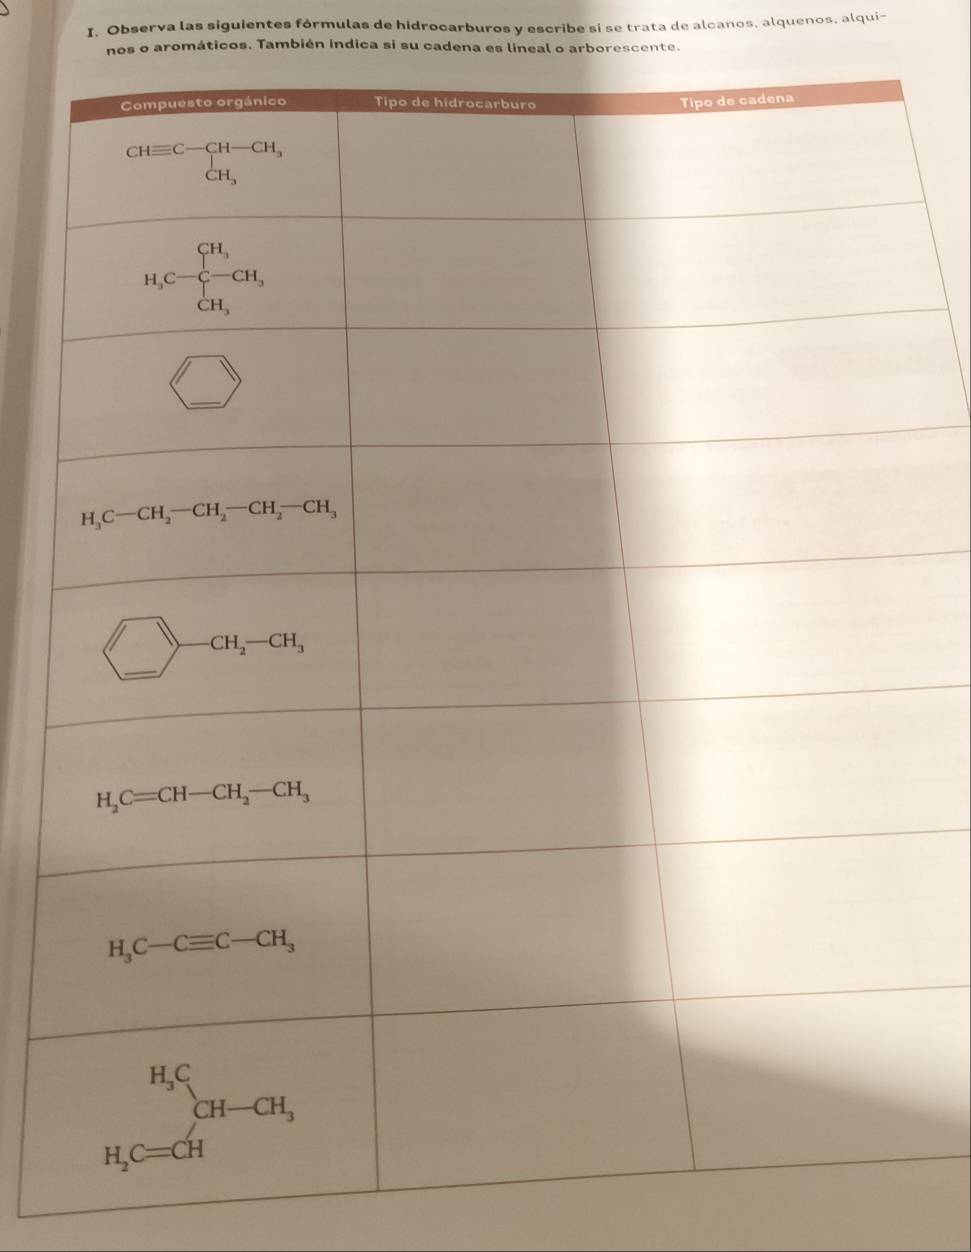 I. Observa las siguientes fórmulas de hidrocarburos y escribe si se trata de alcanos, alquenos, alqui-
nos o aromáticos. También indica si su cadena es lineal o arborescente.
Compuesto orgánico Tipo de hidrocarburo Tipo de cadena
CH≡C—CH—CH₃
CH₃
CH₃
H₃C—C—CH₃
CH₃
H₃C—CH₂—CH₂—CH₂—CH₃
—CH₂—CH₃
H₂C=CH—CH₂—CH₃
H₃C—C≡C—CH₃
H₃C
CH—CH₃
H₂C=CH